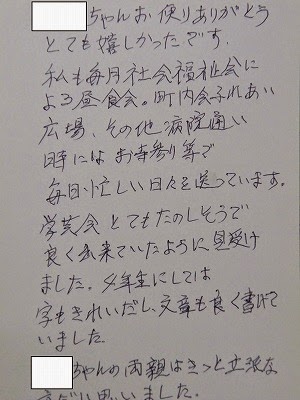 ちゃんお便りありがとう
とても嬉しかったです。
私も毎月社会福祉会に
よる昼食会。町内会ふれあい
広場、その他病院通い
時にはお寺参り等で
毎日忙しい日々を送っています。
学芸会とてもたのしそうで
良く出来ていたように見受け
ました。4年生にしては
字もきれいだし、文章も良く書けて
いました
ちゃんの両親はきっと立派な
方だと思いました。